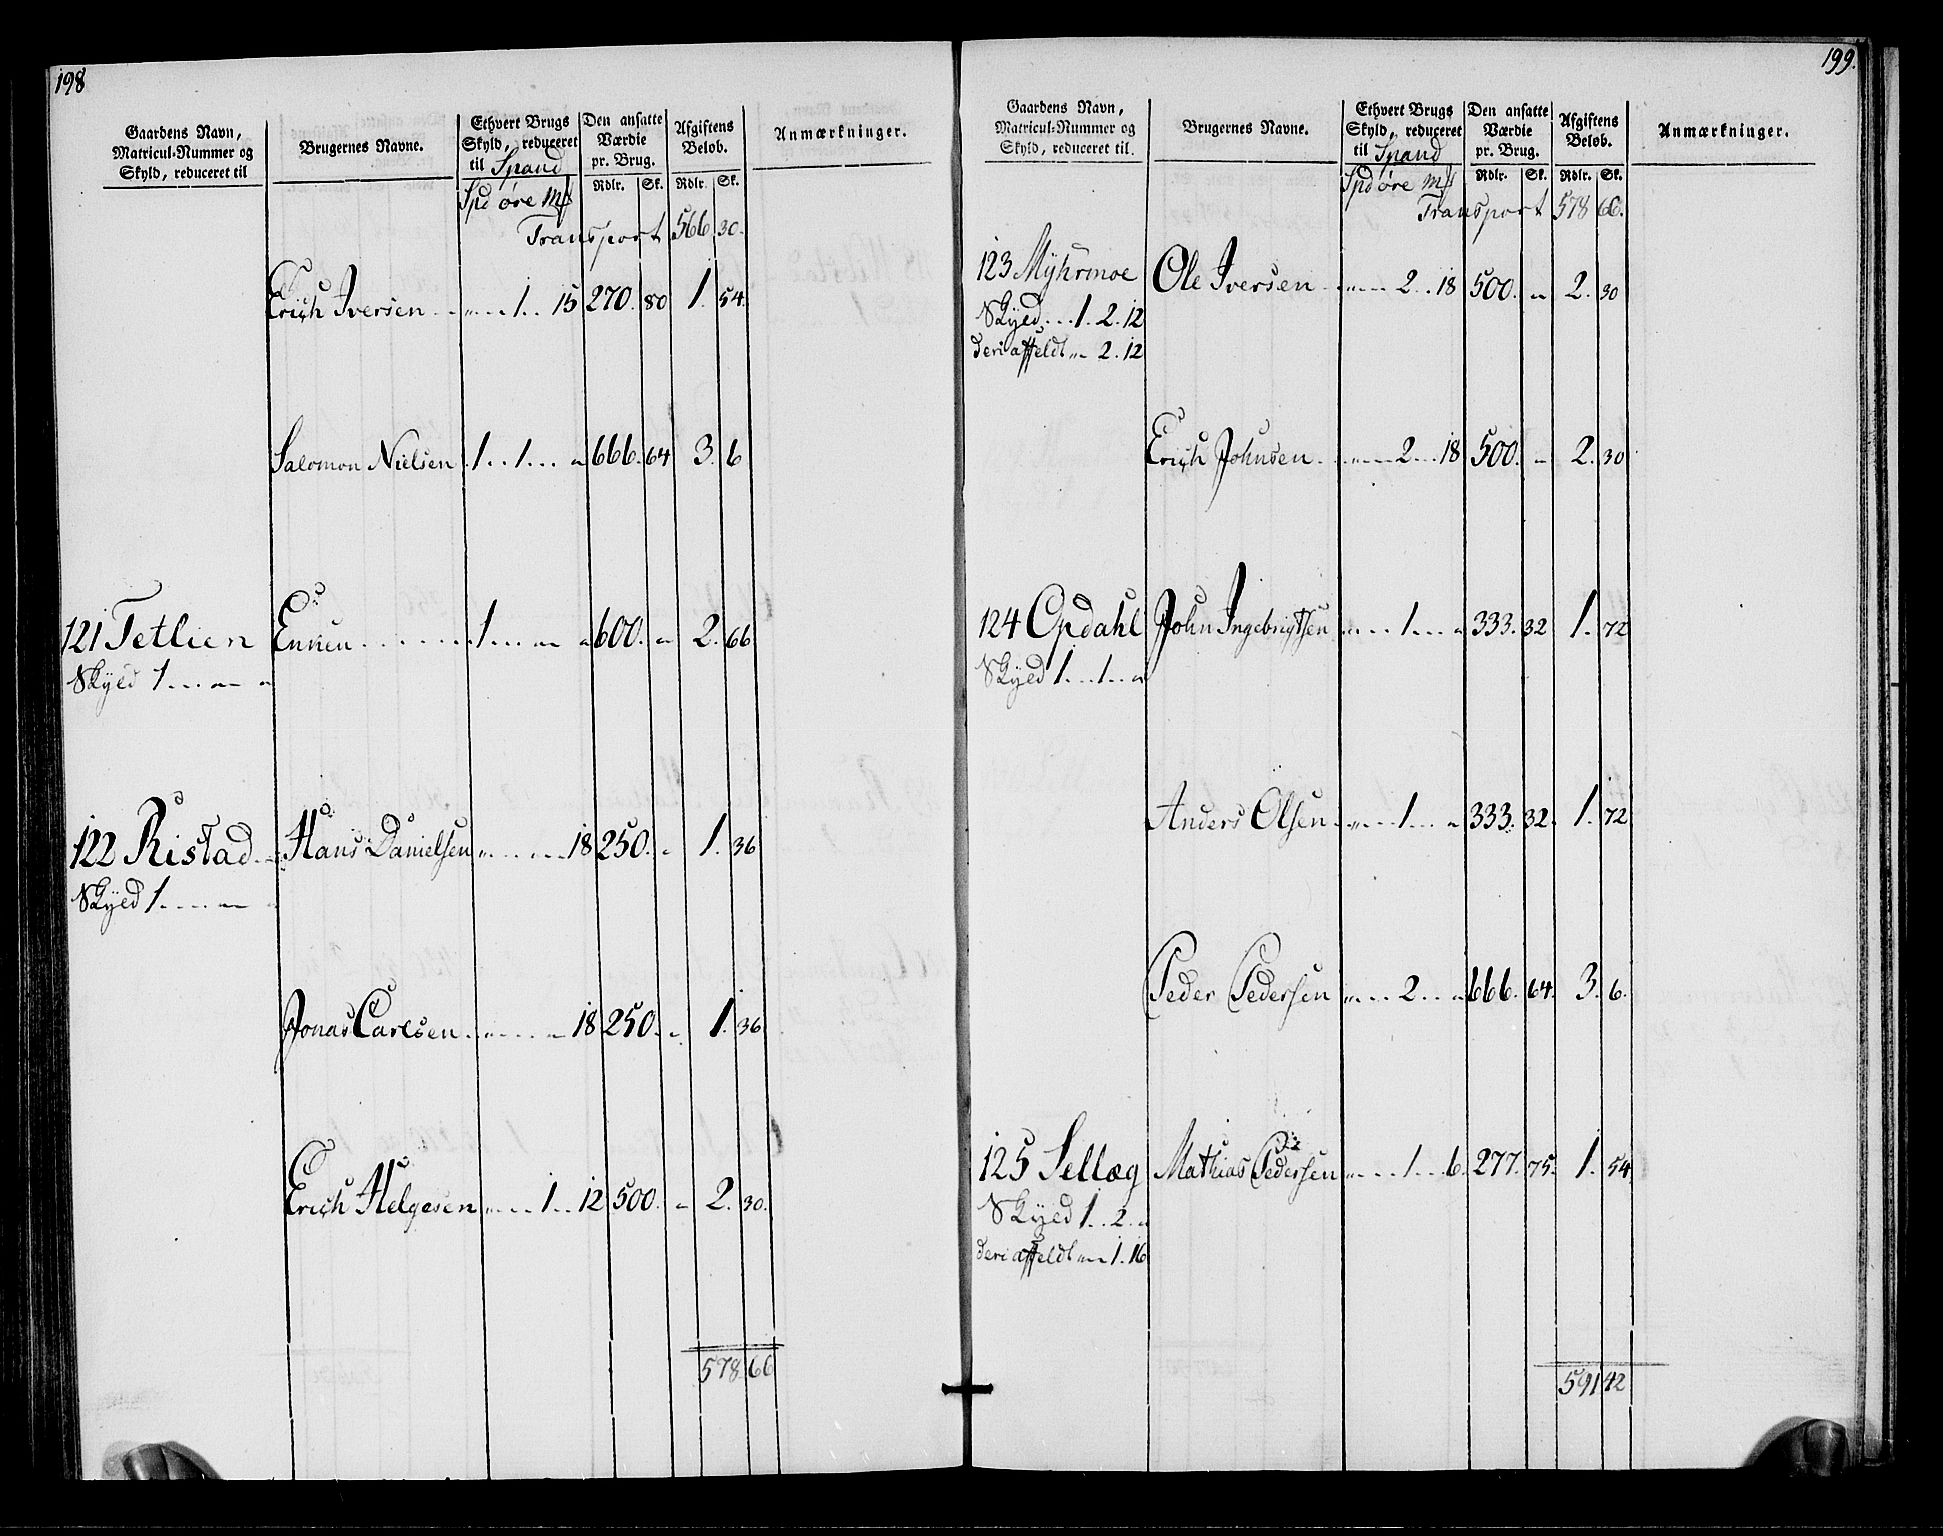 198
Gaardens Navn,
Matricul-Nummer og
Skyld, reduceret til
Brugernes Navne.
Ethvert Brugs
Skyld, reduceret
til Spand
Spd øre mß
Den ansatte
Værdie
pr. Brug.
Rdlr. Sk.
Afgiftens
Beløb.
Rdlr. Sk.
Anmærkninger.
Transport 566 30.
Erich Iversen . . „ . . 1 . . 15 270. 80 1. 54.
Salomon Nielsen . 1 . . 1 . . . „ 666. 64 3. 6
121 Tetlien Enken . . . . . . . 1 . . . „ „ 600. „ 2. 66
Skyld 1 . . . „ „
122 Ristad . . Hans Danielsen „ . . . . „ 18 250. „ 1. 36
Skyld 1 . . . . „
Jonas Carlsen . . „ . . . „ 18 250. „ 1. 36
Erich Helgesen „ . . . 1 . . 12 500. „ 2. 30.
578. 66
199.
Gaardens Navn,
Matricul-Nummer og
Skyld, reduceret til.
Brugernes Navne.
Ethvert Brugs
Skyld, reduceret
til Spand
Spd øre mß
Den ansatte
Værdie
pr. Brug.
Rdlr. Sk.
Afgiftens
Beløb.
Rdlr. Sk.
Anmærkninger.
Transport 578 66.
123 Myhrmoe Ole Iversen . . „ . . 2 . . 18 500. „ 2. 30
Skyld . . . 1 . 2. 12
deri affeldt „ 2. 12
Erich Johnsen . . „ . . 2 . . . 18 500. „ 2. 30
124 Opdahl John Ingebrigtsen „ . . . 1 . . . „ 333. 32 1. 72
Skyld 1 . . . 1 . . „
Anders Olsen . . „ . . 1 . . . „ 333. 32. 1. 72
Peder Pedersen „ . . . 2 . . . „ 666. 64. 3. 6.
125 Sellæg Mathias Pedersen „ . . . 1 . . . 6. 277. 75. 1. 54
Skyld 1 . . 2 . „
deri affeldt „ 1. 16
591 42